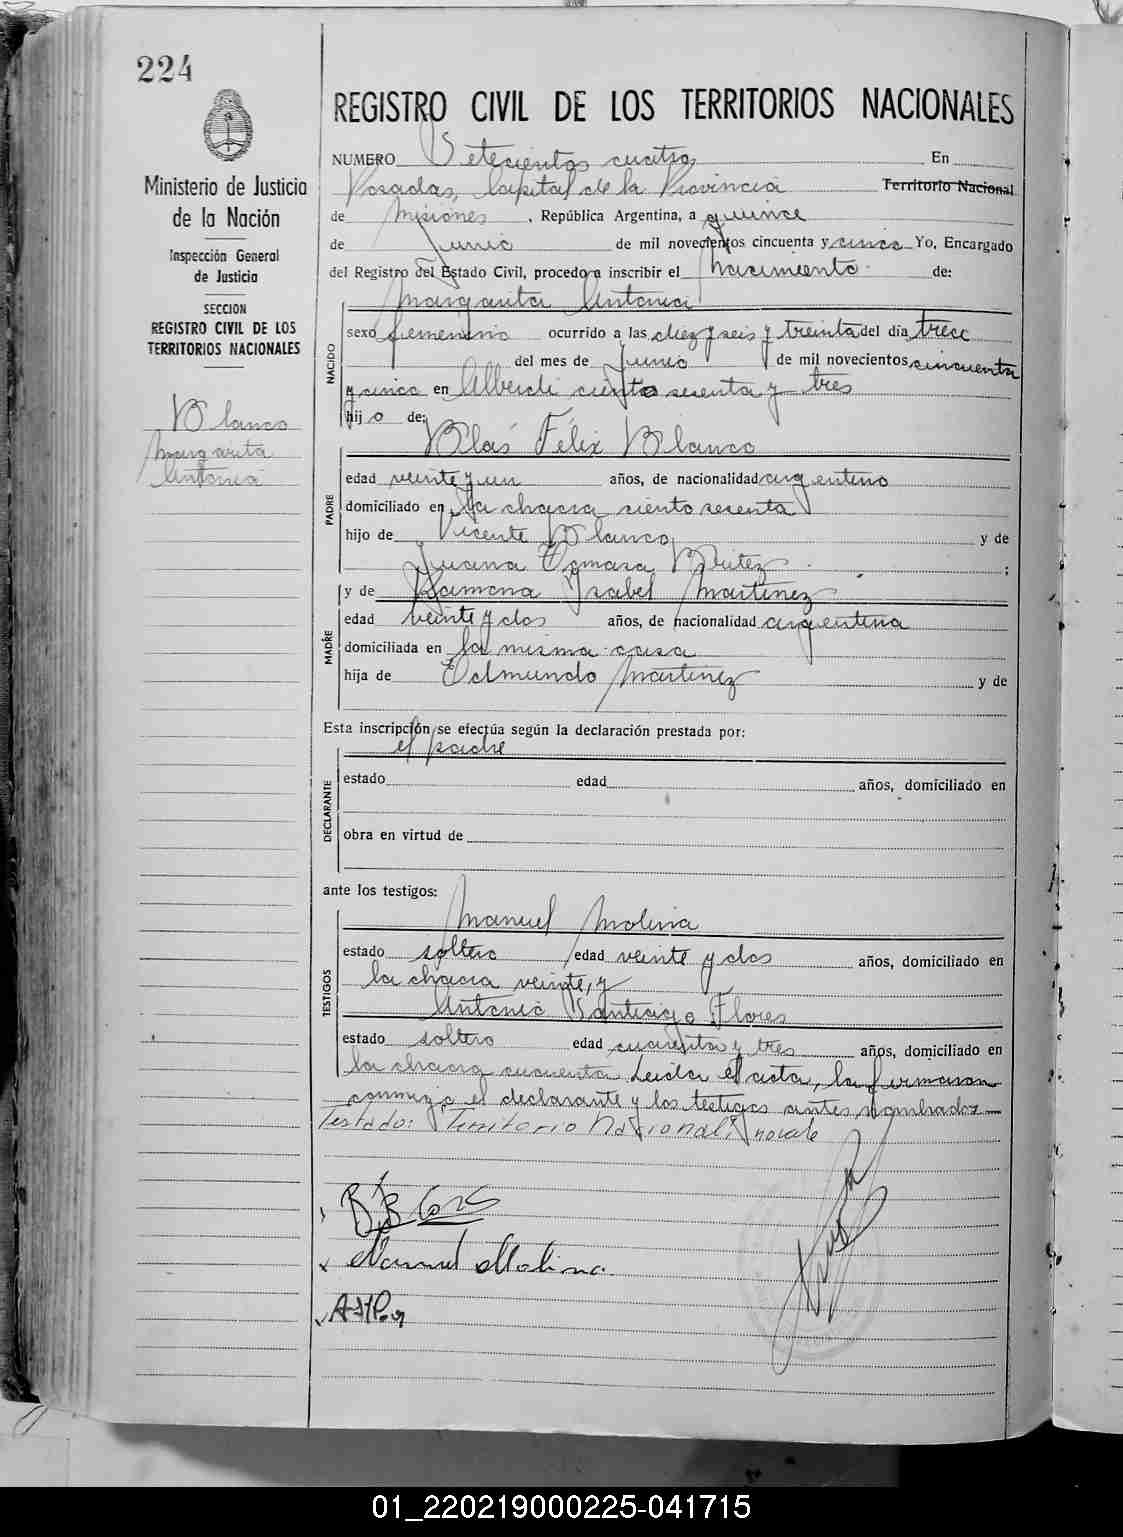 224
Ministerio de Justicia
de la Nación
Inspección General
de Justicia
SECCION
REGISTRO CIVIL DE LOS
TERRITORIOS NACIONALES
Blanco
Margarita
Antonia
REGISTRO CIVIL DE LOS TERRITORIOS NACIONALES
NUMERO Setecientos cuatro En
Posadas, Capital de la Provincia Territorio Nacional
de Misiones , República Argentina, a quince
de Junio de mil novecientos cincuenta y cinco Yo, Encargado
del Registro del Estado Civil, procedo a inscribir el Nacimiento de:
Margarita Antonia
NACIDO
sexo femenino ocurrido a las diez y seis y treinta del día trece
del mes de Junio de mil novecientos cincuenta
y cinco en Alberdi ciento sesenta y tres
hijo de:
Blas Félix Blanco
PADRE
edad veinte y un años, de nacionalidad argentino
domiciliado en la chacra ciento sesenta
hijo de Vicente Blanco y de
Juana Tomasa ;
y de Ramona Isabel Martinez
MADRE
edad veinte y dos años, de nacionalidad argentina
domiciliada en la misma casa
hija de Edmundo Martinez y de
Esta inscripción se efectúa según la declaración prestada por:
el padre
DECLARANTE
estado edad años, domiciliado en
obra en virtud de
ante los testigos:
Manuel Molina
TESTIGOS
estado soltero edad veinte y dos años, domiciliado en
la chacra veinte, y
Antonio Santiago Flores
estado soltero edad cuarenta y tres años, domiciliado en
la chacra cuarenta Leida el acta, la firmaron
conmigo el declarante y los testigos antes nombrados
Testado: Territorio Nacional: no vale
Manuel Molina
01_220219000225-041715